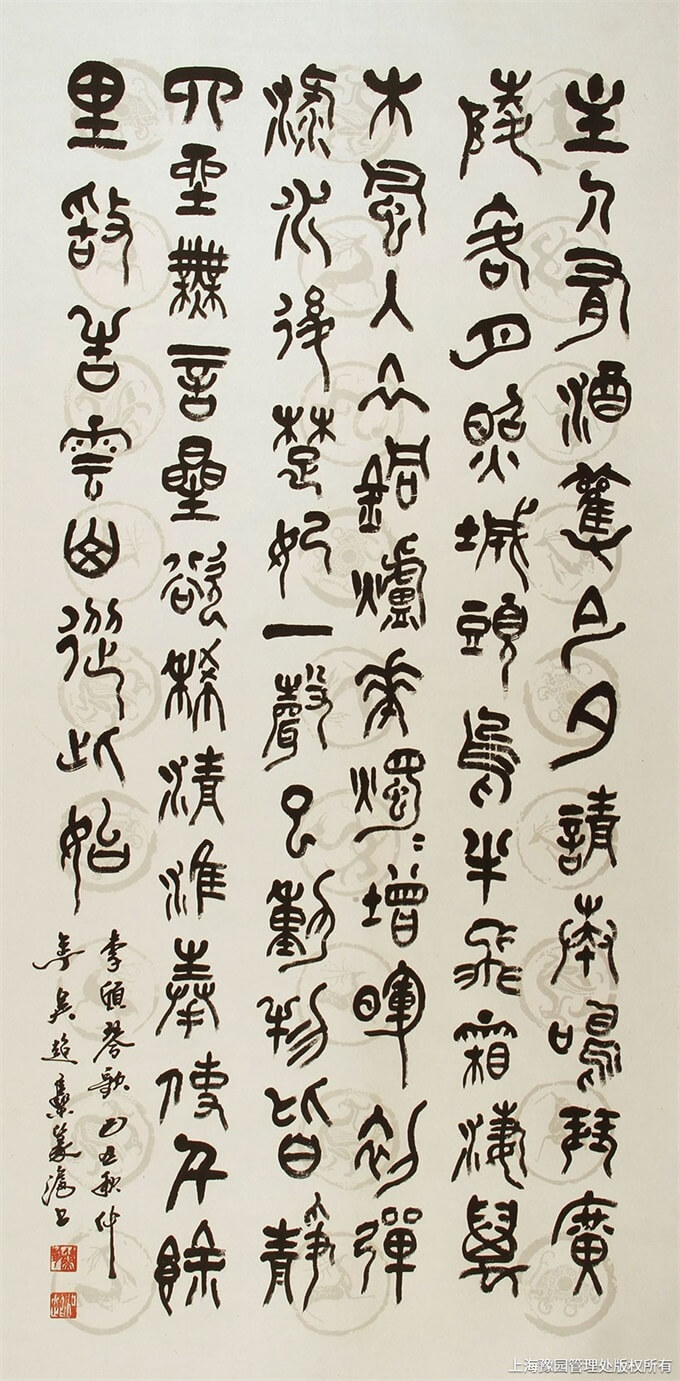 主人有酒歡今夕請奏鳴琴廣
陵客月照城頭烏半飛霜淒萬
木風入衣銅鑪華燭〻增暉初彈
淥水後楚妃一聲已動物皆靜
四坐無言星欲稀清淮奉使千餘
里敢告雲山從此始
李頎琴歌 己丑秋仲
吳超篆滬上
上海豫园管理处版权所有